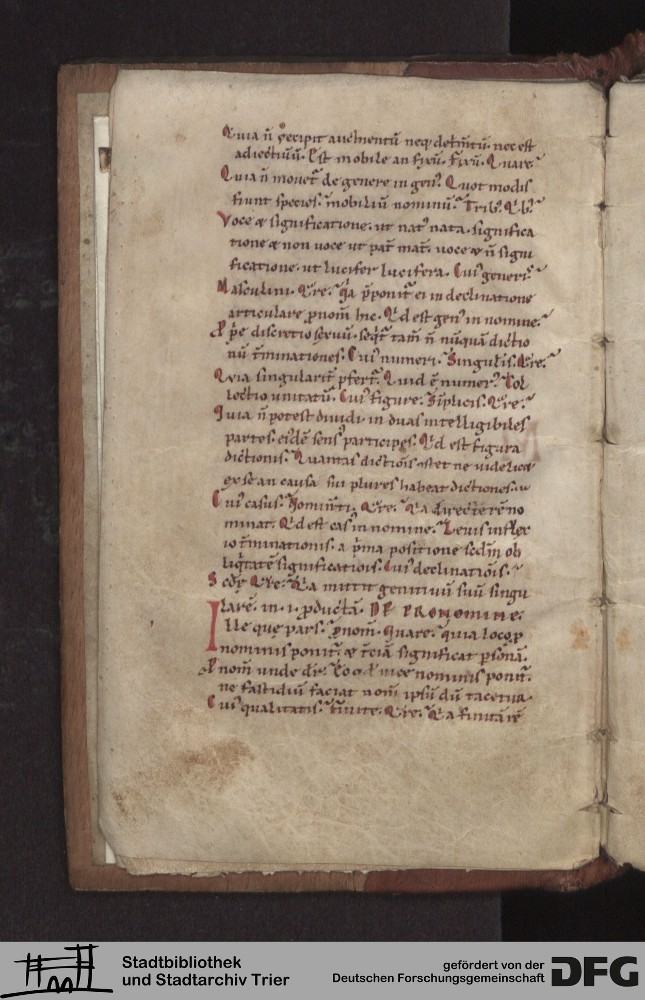 Quia n̄ recipit aucmentū neq; detm̄tū. nec est
adiectiuū. Est mobile an fixū. Fixū. Quare.
Quia n̄ mouet̄ de genere in gen'. Quot modis
fiunt species. mobiliū nominū. Trib'. Qb'.
Voce & significatione. ut nat' nata. significa
tione & non voce ut pat̄ mat̄. voce & n̄ signi
ficatione. ut lucifer lucifera. Cui' generis.
Masculini. Qre. qa p̄ponit̄ ei in declinatione
articulare pnom̄ hic. Qd est gen' in nomine.
discretio sexuū. seqt̄ tam̄ n̄ nūquā dictio
nū t̄minationes. Cui' numeri. Singulis. Qre.
Quia singularit̄ pfert̄. Quid ē numer'. Col
lectio unitatū. Cui' figure. Simplicis. Qre.
Quia n̄ potest diuidi in duas intelligibiles
partes. eidē sens' participes. Qd est figura
dictionis. Quantas dictiois ostet ne videlicet
ex se an causa sui plures habeat dictiones.
Cui' casus. Nominti. Qre. Qa directe rē no
minat. Qd est cas' in nomine. Leuis inflex
io t̄minationis. a p̄ma positione scdm̄ ob
liqtatē significatiois. Cui' declinatiois.
Scdȩ. Qre. Qa mittit genitiuū suū singu
larē. in .i. pductā. DE PRONOMINE.
Ille que pars. pnom̄. Quare. quia loco p
nominis ponit̄. & t̄ciā significat psonā.
Pnom̄ unde dir̄. Eo qd uice nominis ponit̄.
ne fastidiū faciat nom̄ ipsū dū tacetur.
Cui' qualitatis. finite. Qre. Qa finitā rē
Stadtbibliothek
und Stadtarchiv Trier
gefördert von der
Deutschen Forschungsgemeinschaft
DFG